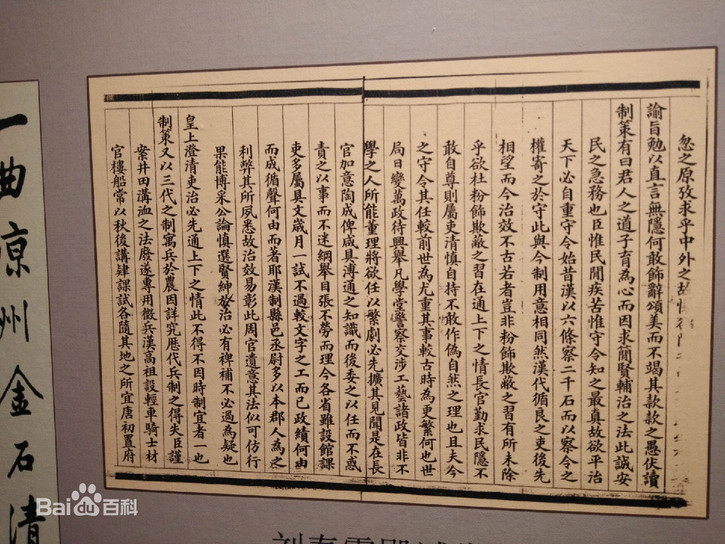 忽之原攷求乎中外之故
諭旨勉以直言無隱何敢飾辭頌美而不竭其款款之愚伏讀
制策有曰君人之道子育為心而因求聞賢輔治之法此誠安
民之急務也臣惟民間疾苦惟守令知之最真故欲平治
天下必自重守令始昔漢以六條察二千石而以察令之
權寄之於守此與今制用意相同然漢代循良之吏後先
相望而今治效不古若者豈非粉飾欺蔽之習有所未除
乎欲杜粉飾欺蔽之習在通上下之情長官勤求民隱不
敢自尊則屬吏清慎自持不敢作偽自然之理也且夫今
之守令其任較前世為尤重其事較古時為更繁何也世
局日變萬政待興舉凡學堂警察交涉工藝諸政皆非不
學之人所能董理將欲任以繁劇必先擴其見聞是在長
官加意陶成俾咸具溥通之知識而後委之以任而不惑
責之以事而不迷綱舉目張不勞而理今各省雖設館課
吏多屬具文歲月一試不過較文字之工而已政績何由
而成循聲何由而著耶漢制縣邑丞尉多以本郡人為之
利弊其所夙悉故治效易彰此周官遺意其法似可仿行
果能博采公論慎選賢紳發治必有裨補不必過為疑也
皇上澄清吏治必先通上下之情此不得不因時制宜者一也
制策又以三代之制寓兵於農因詳究歷代兵制之得失臣謹
案井田溝洫之法廢遂專用徵兵漢高祖設輕車騎士材
官樓船常以秋後講肄課試各隨其地之所宜唐初置府
一曲涼州金石清
Bai百科